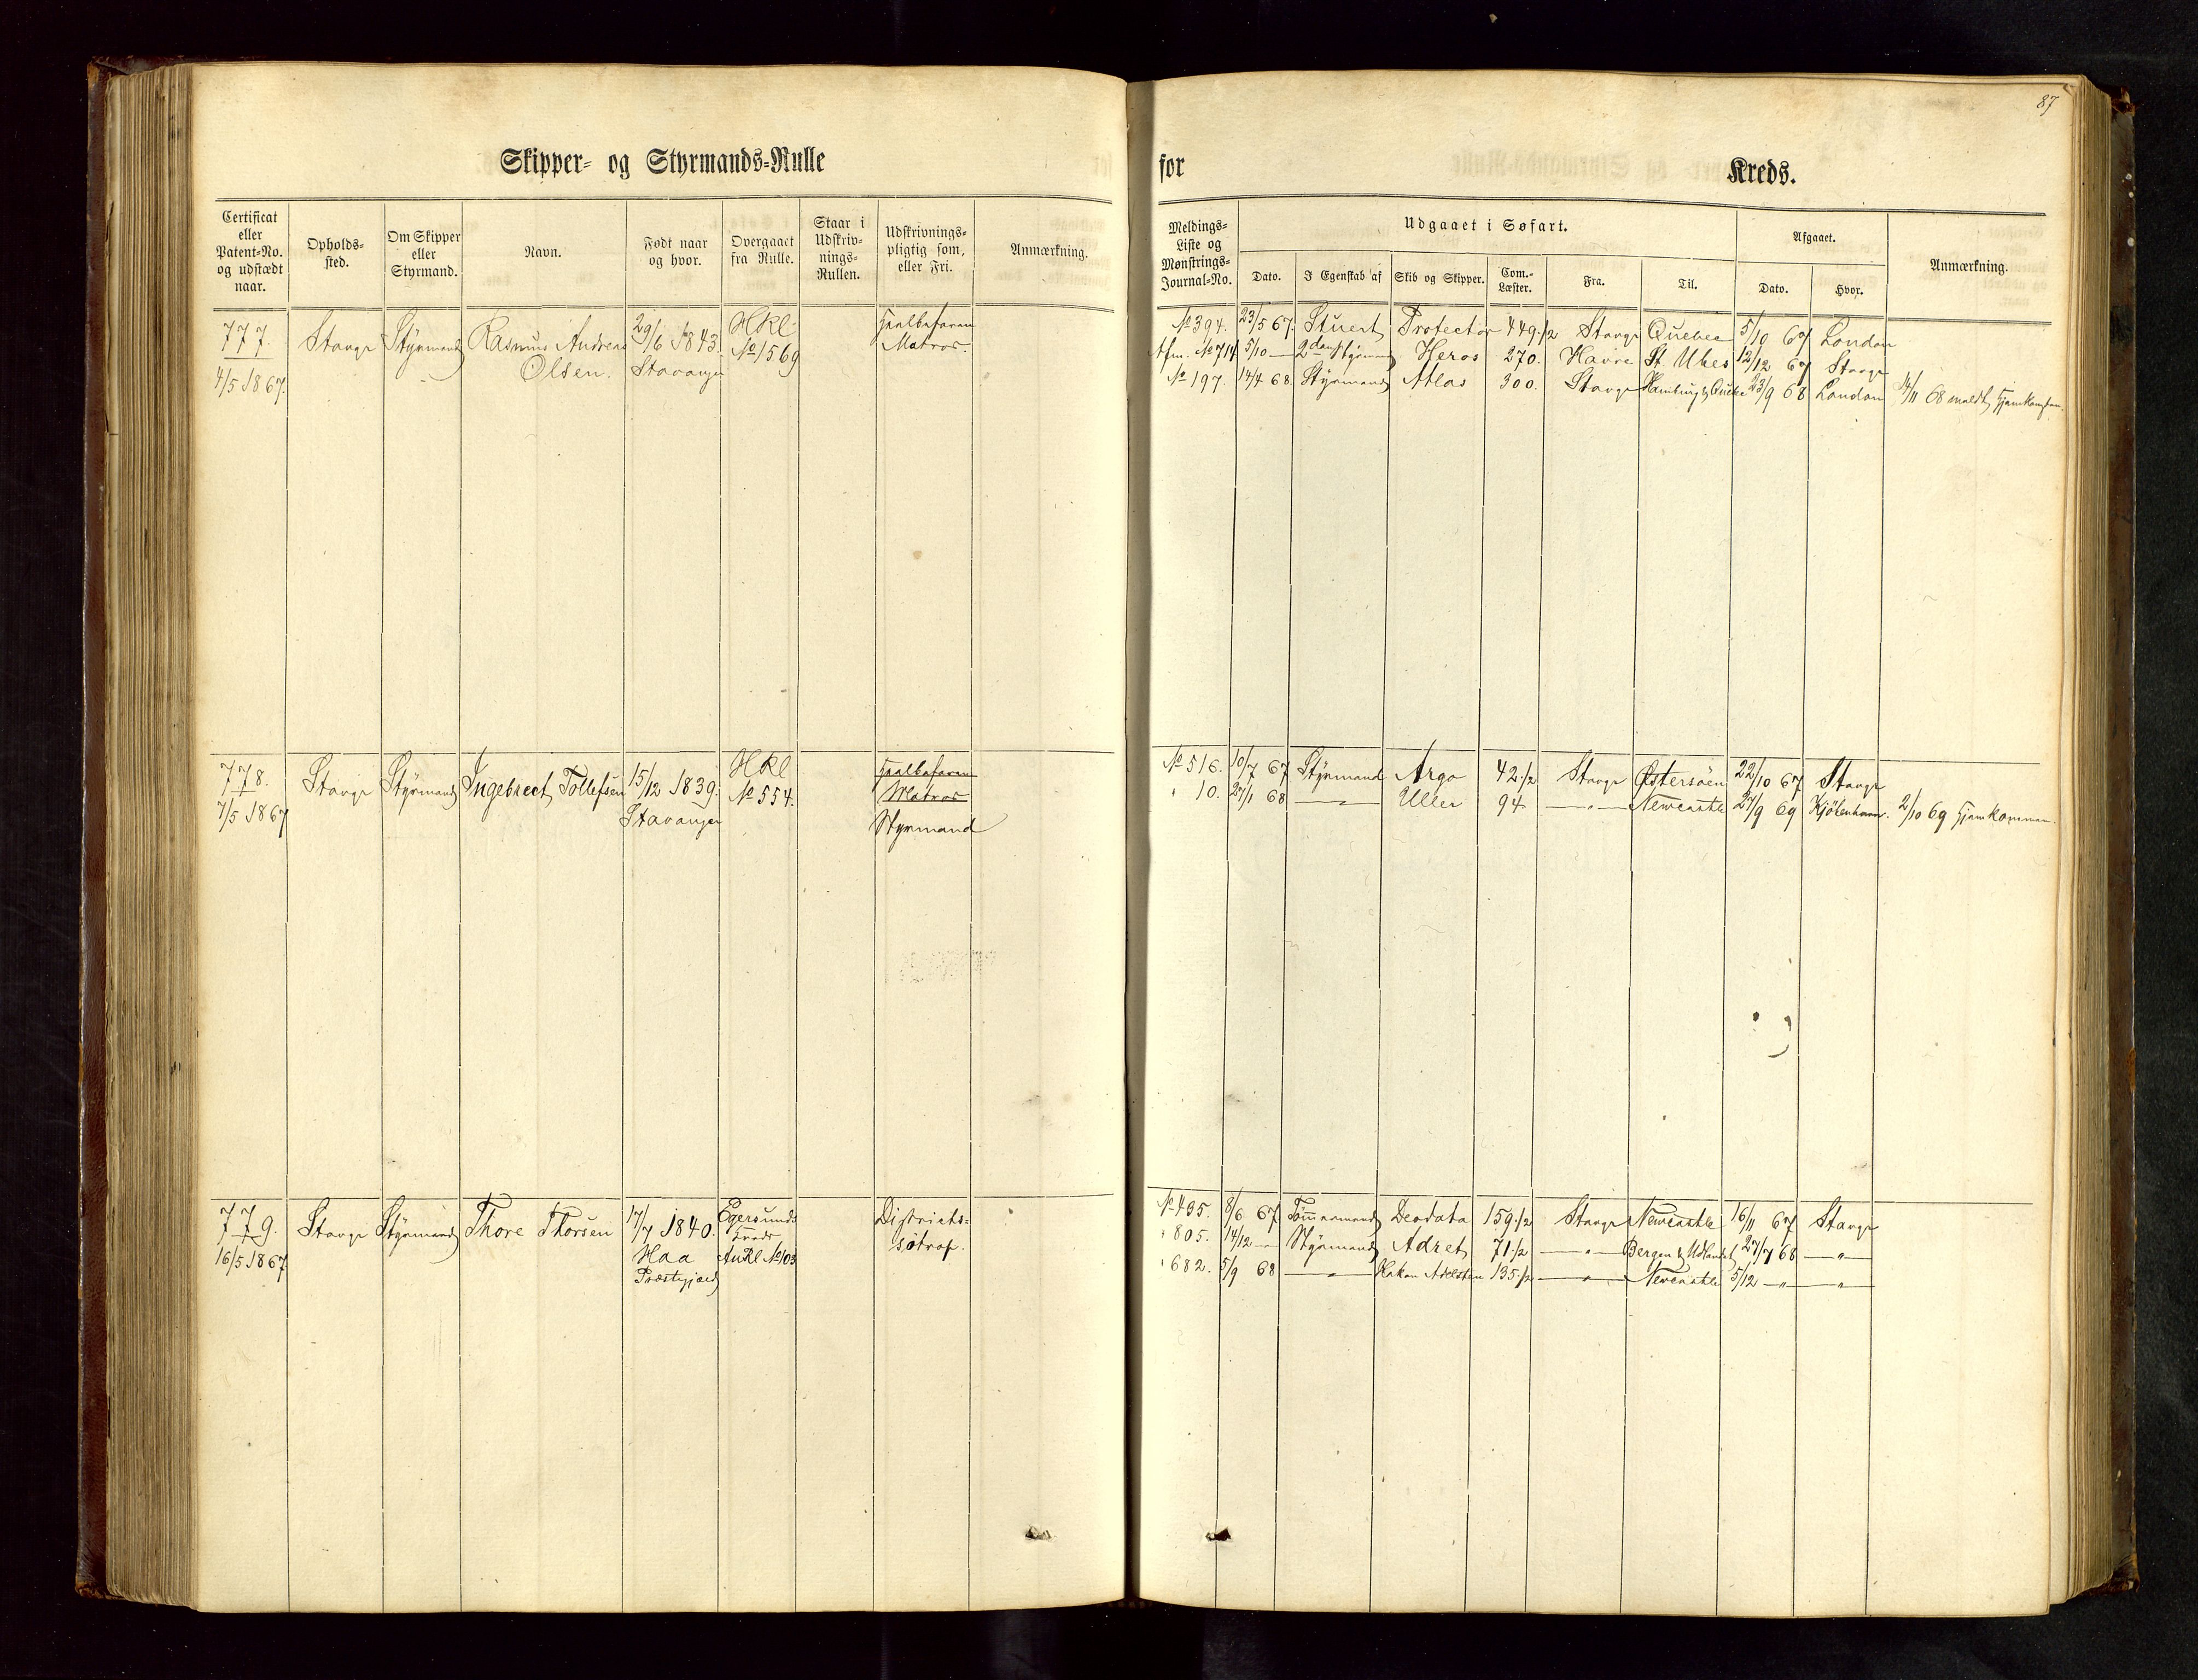 87
Skipper- og Styrmands-Rulle
for
Kreds.
Certificat eller Patent-No. og udstædt naar.
Opholds-sted.
Om Skipper eller Styrmand.
Navn.
Født naar og hvor.
Overgaaet fra Rulle.
Staar i Udskriv-nings-Rullen.
Udskrivnings-pligtig som, eller Fri.
Anmærkning.
Meldings-Liste og Mønstrings-Journal-No.
Udgaaet i Søfart.
Dato.
I Egenskab af
Skib og Skipper.
Com.-Læster.
Fra.
Til.
Afgaaet.
Dato.
Hvor.
Anmærkning.
777. Stavgr Styrmand Rasmus Andreas 29/6 1843. Hkl
Olsen. Stavanger No 1569
4/5 1867.
Matros.
No 394. 23/5 67. Stuert Protector 449 1/2 Stavgr Quebec 5/10 67 London
Afm. No 714 5/10 — 2den Styrmand Heros 270. Havre St. Ubes 12/12 67 Stavgr
No 197. 14/4 68. Styrmand Atlas 300. Stavgr Hamburg & Quebec 23/9 68 London 14/11 68 meldt hjemkommen.
778. Stavgr Styrmand Ingebrect Tollefsen 15/12 1839. Hkl
7/5 1867 Stavanger No 554.
Matros
Styrmand
No 516. 10/7 67 Styrmand Argo 42 1/2 Stavgr Østersöen 22/10 67 Stavgr
" 10. 27/1 68 — " — Uller 94 — " — Newcastle 27/9 69 Kjöbenhavn. 2/10 69 hjemkommen.
779. Stavgr Styrmand Thore Thorsen 17/7 1840. Egersunds Districts-
16/5 1867 Haa Kreds søtrop.
Præstegjæld AnRl No 103
No 435. 8/6 67 Tömmermand Deodata 159 1/2 Stavgr Newcastle 16/11 67 Stavgr
" 805. 14/12 — Styrmand Adret 71 1/2 — " — Bergen & Udlandet 27/7 68 — " —
" 682. 5/9 68 — " — Hakon Adelsten 135 1/2 — " — Newcastle 5/12 — " — — " —